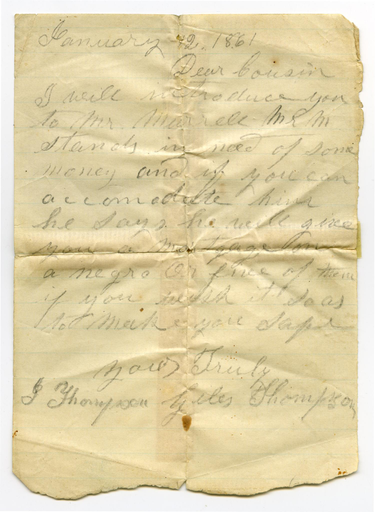 January 2, 1861
Dear Cousin
I will introduce you
to Mr. Marrell Mr M
stands in need of some
money and if you can
accomodate him
he says he will give
you a mortgage on
a negro or five of them
if you wish it so as
to make you safe
yours Truly
J Thompson Gyles Thompson